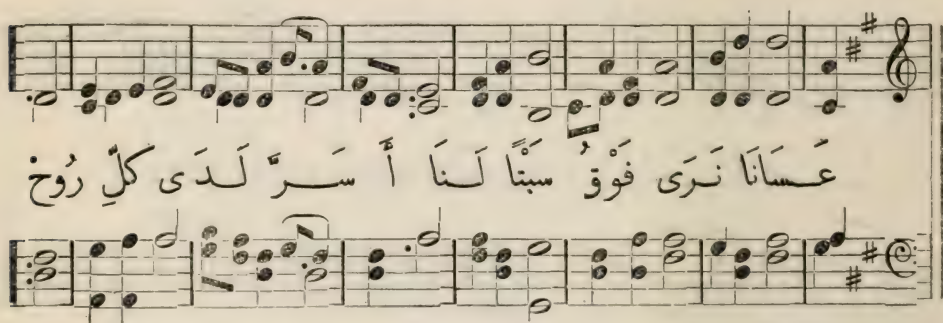 عَسَانَا نَرَى فَوْقُ سَبْتًا لَنَا أَ سَرَّ لَدَى كلِّ رُوحْ